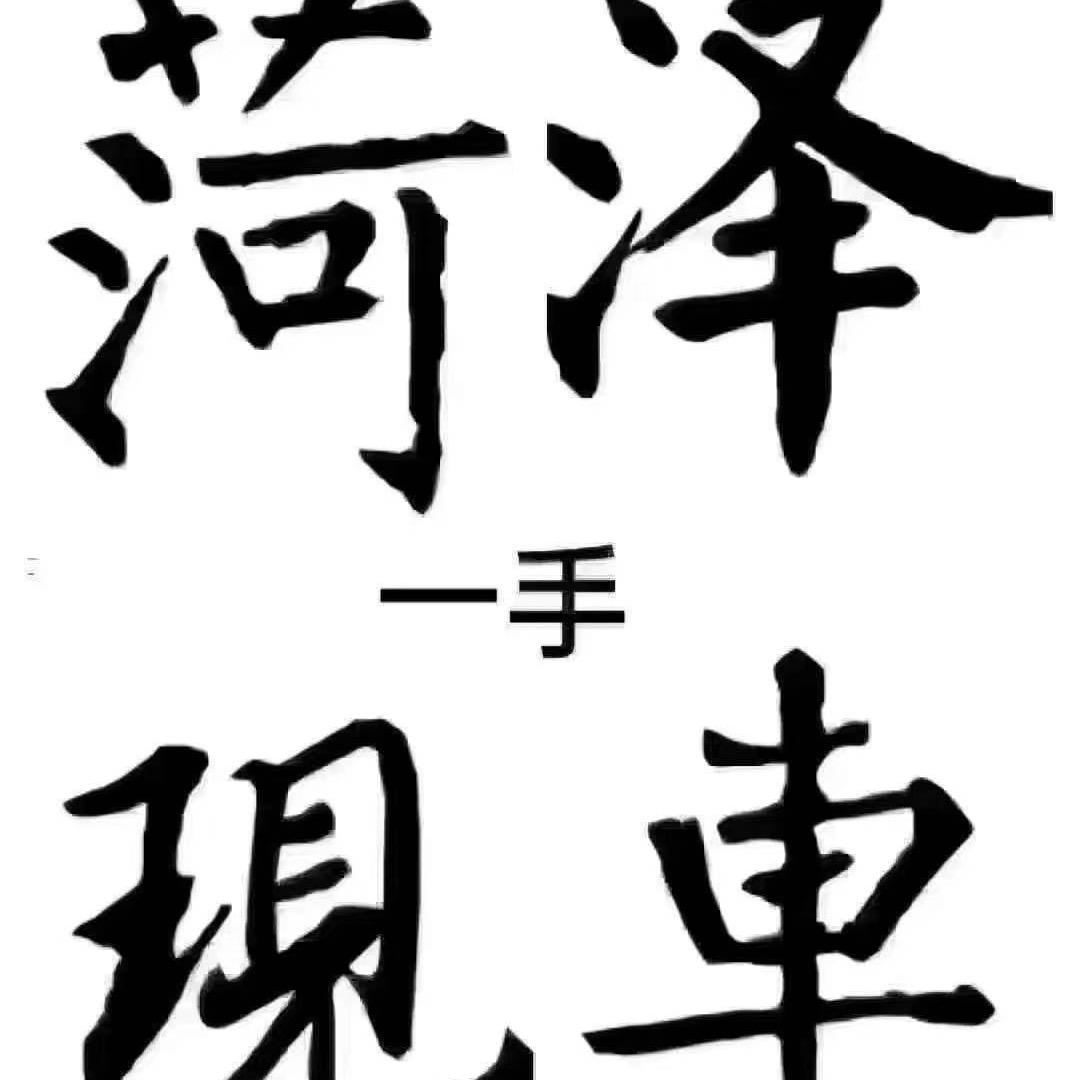 菏泽
一手
現車